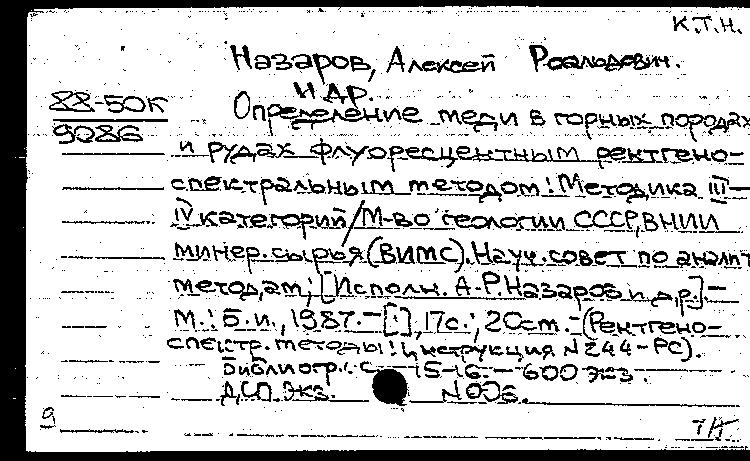 К.Т.Н.
Назаров, Алексей
и др.
88-50К
9086
Определение меди в горных породах
и рудах флуоресцентным рентгено-
спектральным методом: Методика III-
IV категорий/М-во геологии СССР, ВНИИ
минер. сырья (ВИМС). Науч. совет по аналит
методам; [Исполн. А.Р. Назаров и др.].-
М.: Б.и., 1987.- [ ], 17с.; 20см.- (Рентгено-
спектр. методы: Инструкция N 244-РС).
Библиогр.: с. 15-16.- 600 экз.
ДСП. Экз. N
9